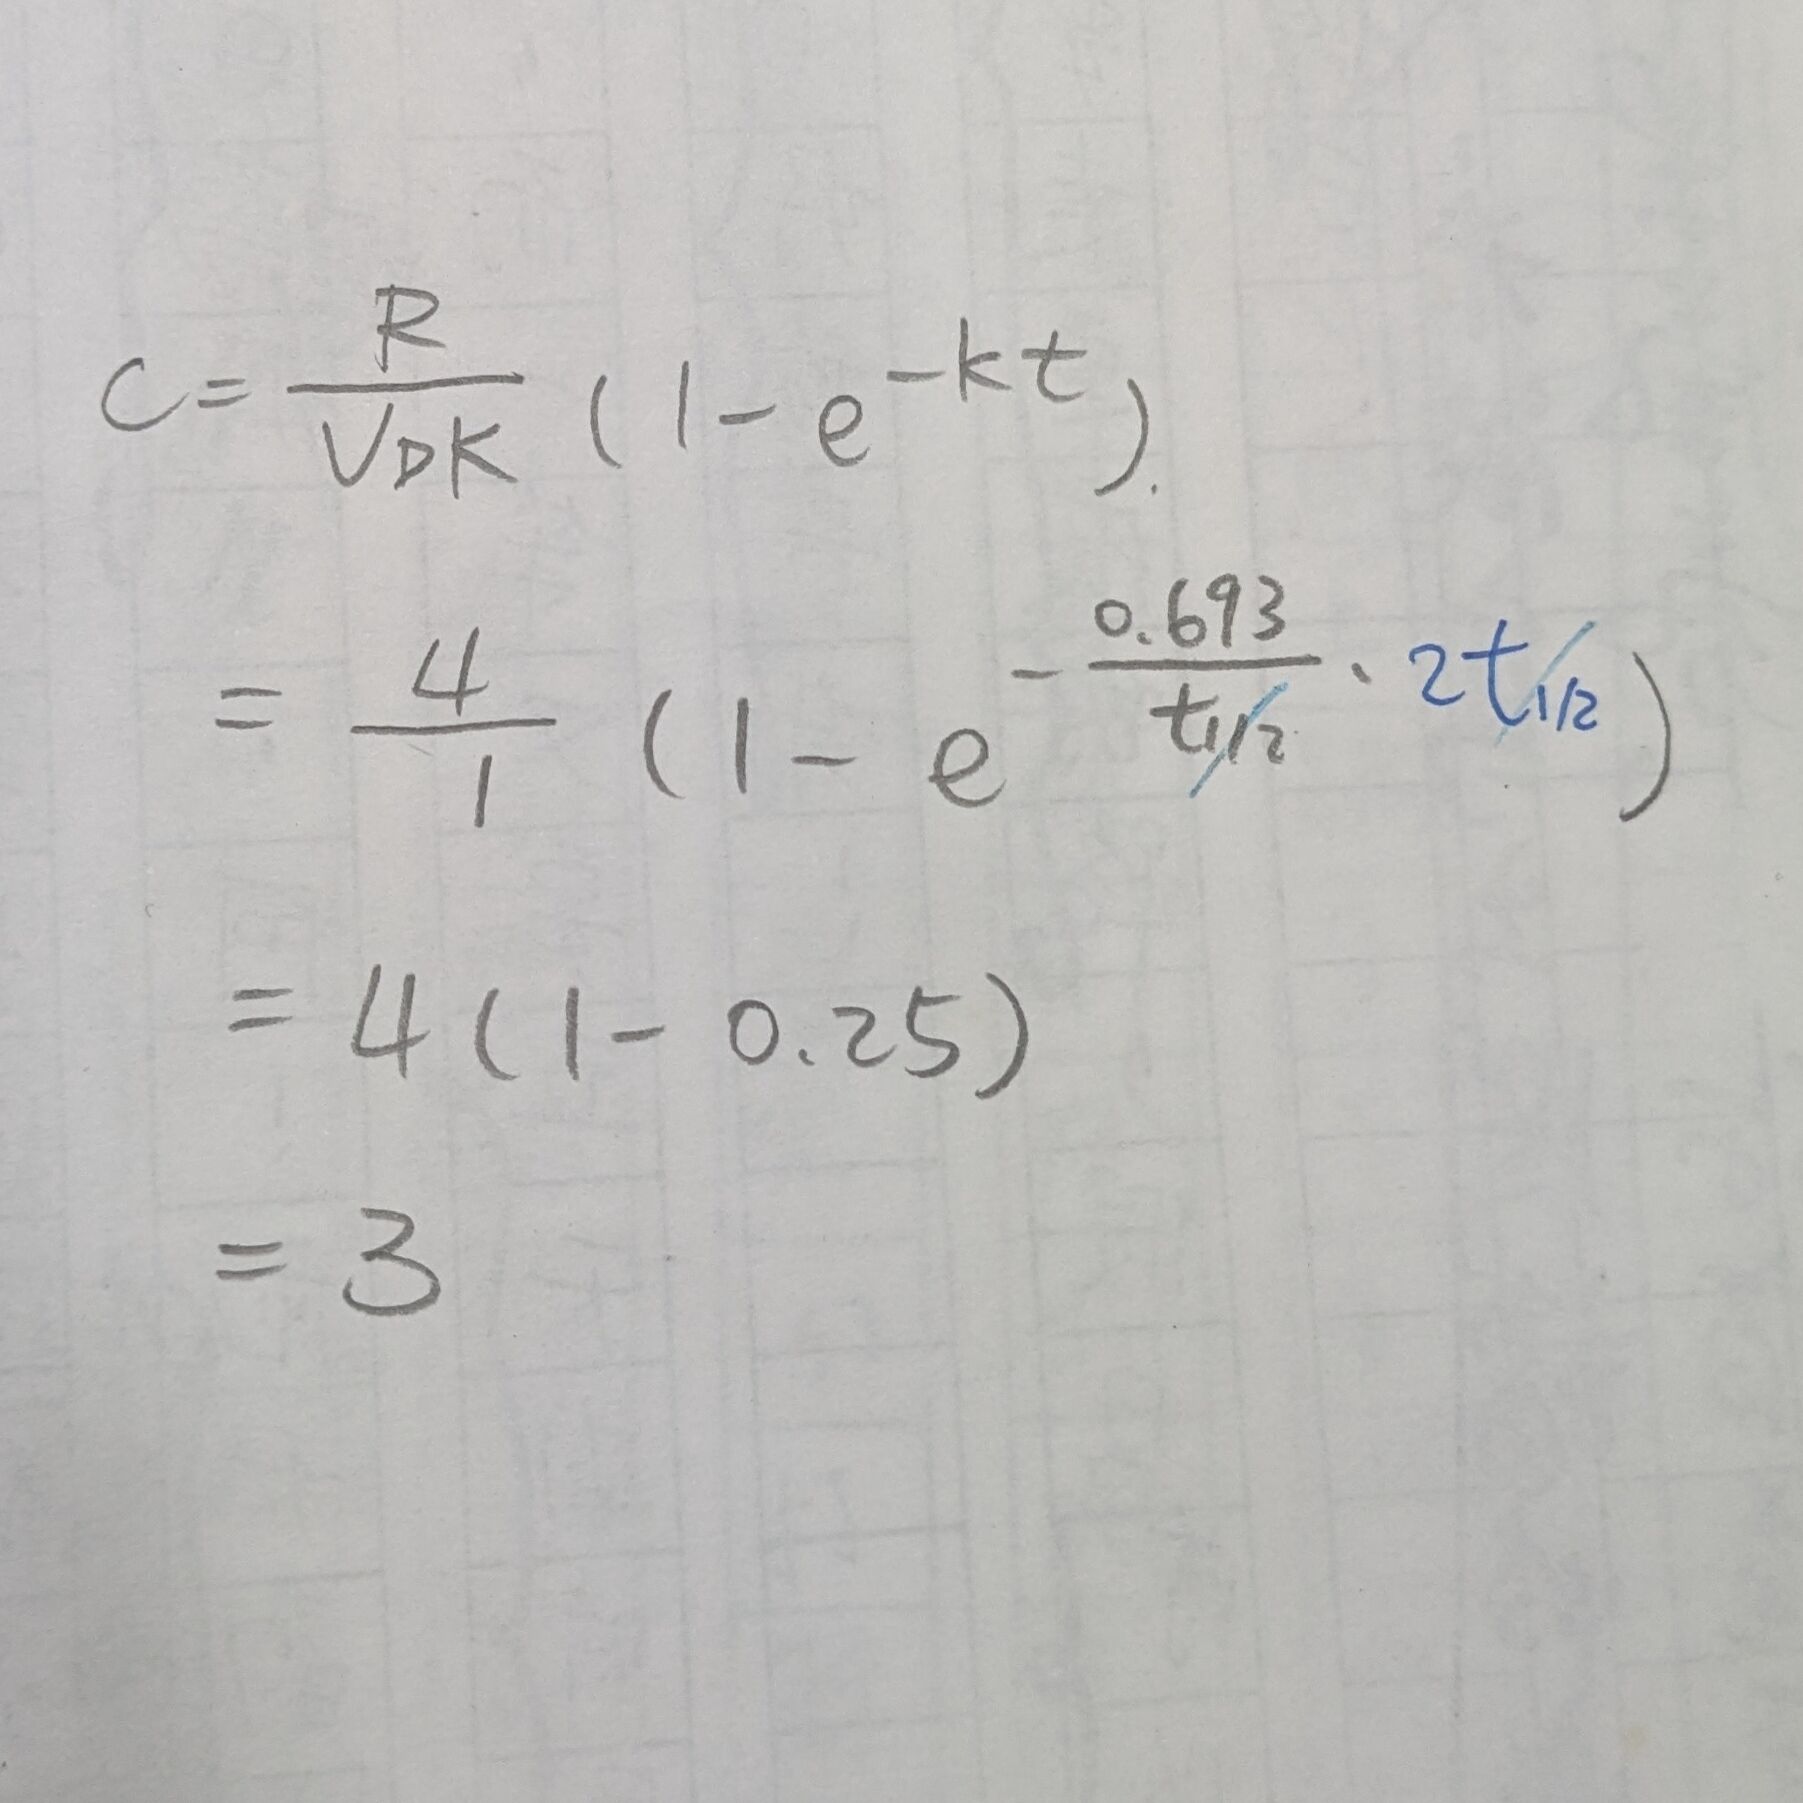 C = R / V_D K (1 - e^{-kt}).
= 4 / 1 (1 - e^{- 0.693 / t_{1/2} · 2t_{1/2}})
= 4 (1 - 0.25)
= 3